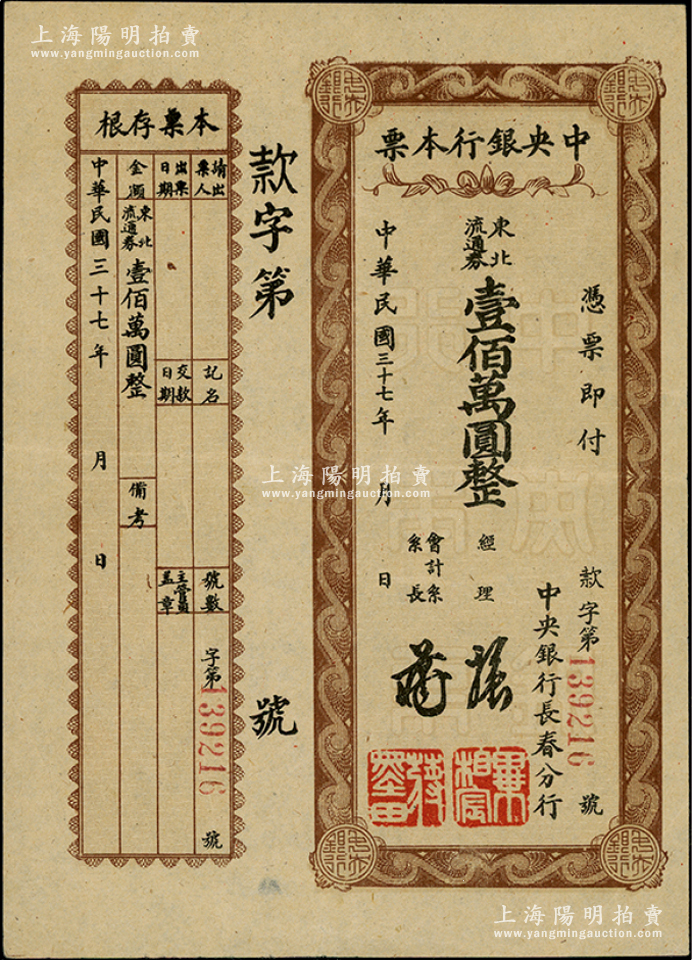 上海陽明拍賣
www.yangmingauction.com
中央銀行本票
憑票即付
款字第139216號
中央銀行長春分行
東北流通券
壹佰萬圓整
經理
會計系系長
中華民國三十七年 月 日
款字第 號
本票存根
請出票人
記名
號數
字第139216號
出票日期
交款日期
主管員蓋章
金額
東北流通券
壹佰萬圓整
備考
中華民國三十七年 月 日
上海陽明拍賣
www.yangmingauction.com
上海陽明拍賣
www.yangmingauction.com